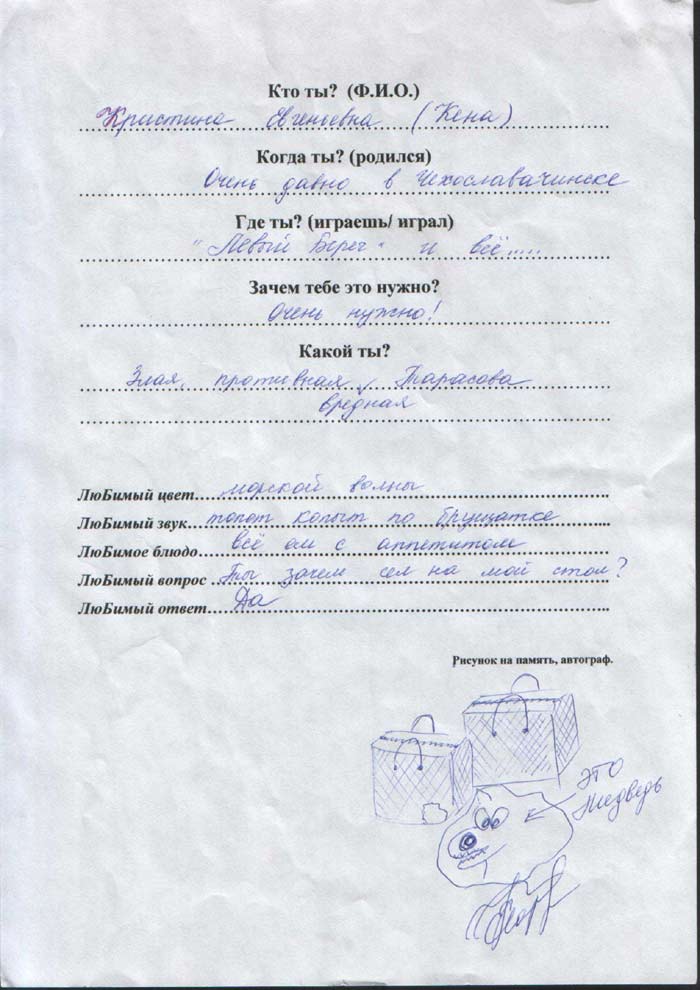 Кто ты? (Ф.И.О.)
Кристина Евгеньевна (Кена)
Когда ты? (родился)
Очень давно в Чехославачинске
Где ты? (играешь/ играл)
"Левый Берег" и всё.....
Зачем тебе это нужно?
Очень нужно!
Какой ты?
Злая, противная, Тарасова
вредная
ЛюБимый цвет морской волны
ЛюБимый звук топот копыт по брущатке
ЛюБимое блюдо всё ем с аппетитом
ЛюБимый вопрос Ты зачем сел на мой стол?
ЛюБимый ответ Да
Рисунок на память, автограф.
ЭТО
Медведь